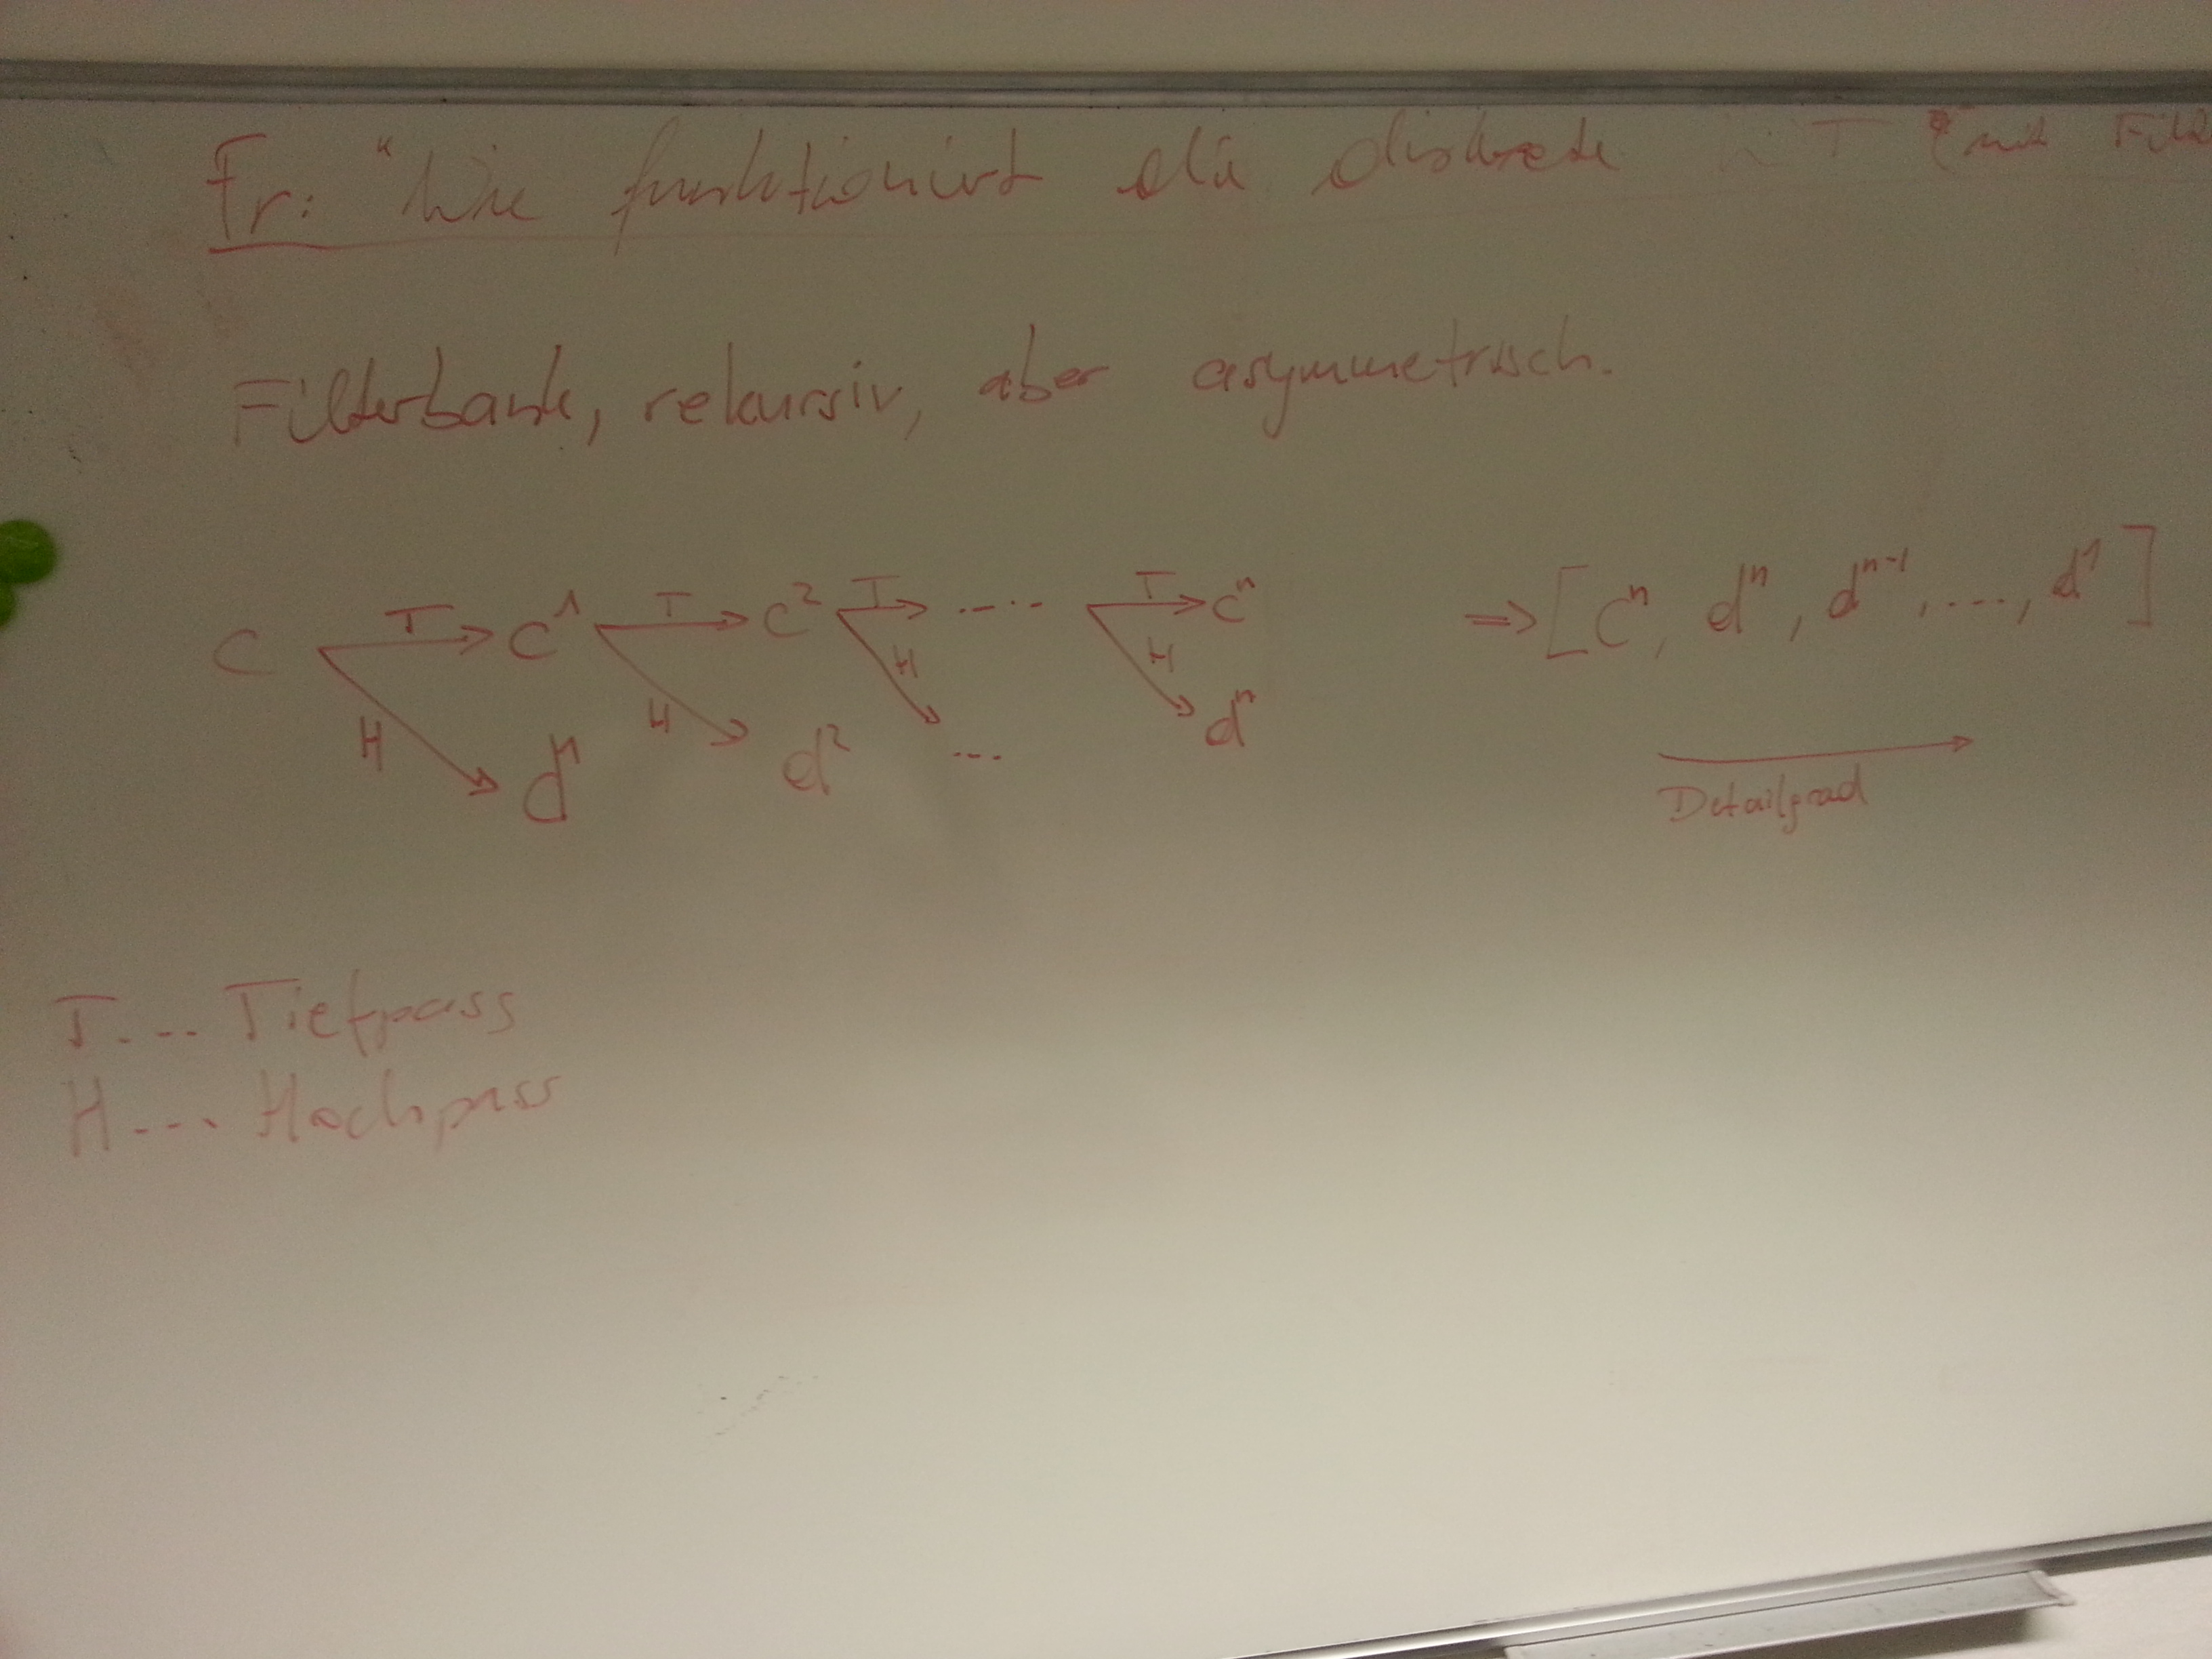 Fr: "Wie funktioniert die diskrete T mit
Filterbank, rekursiv, aber asymmetrisch.
C T C¹ T C² T .... T Cⁿ ⇒ [Cⁿ, dⁿ, dⁿ⁻¹, ...., d¹]
H d¹ H d² H ... H dⁿ
Detailgrad
T... Tiefpass
H... Hochpass